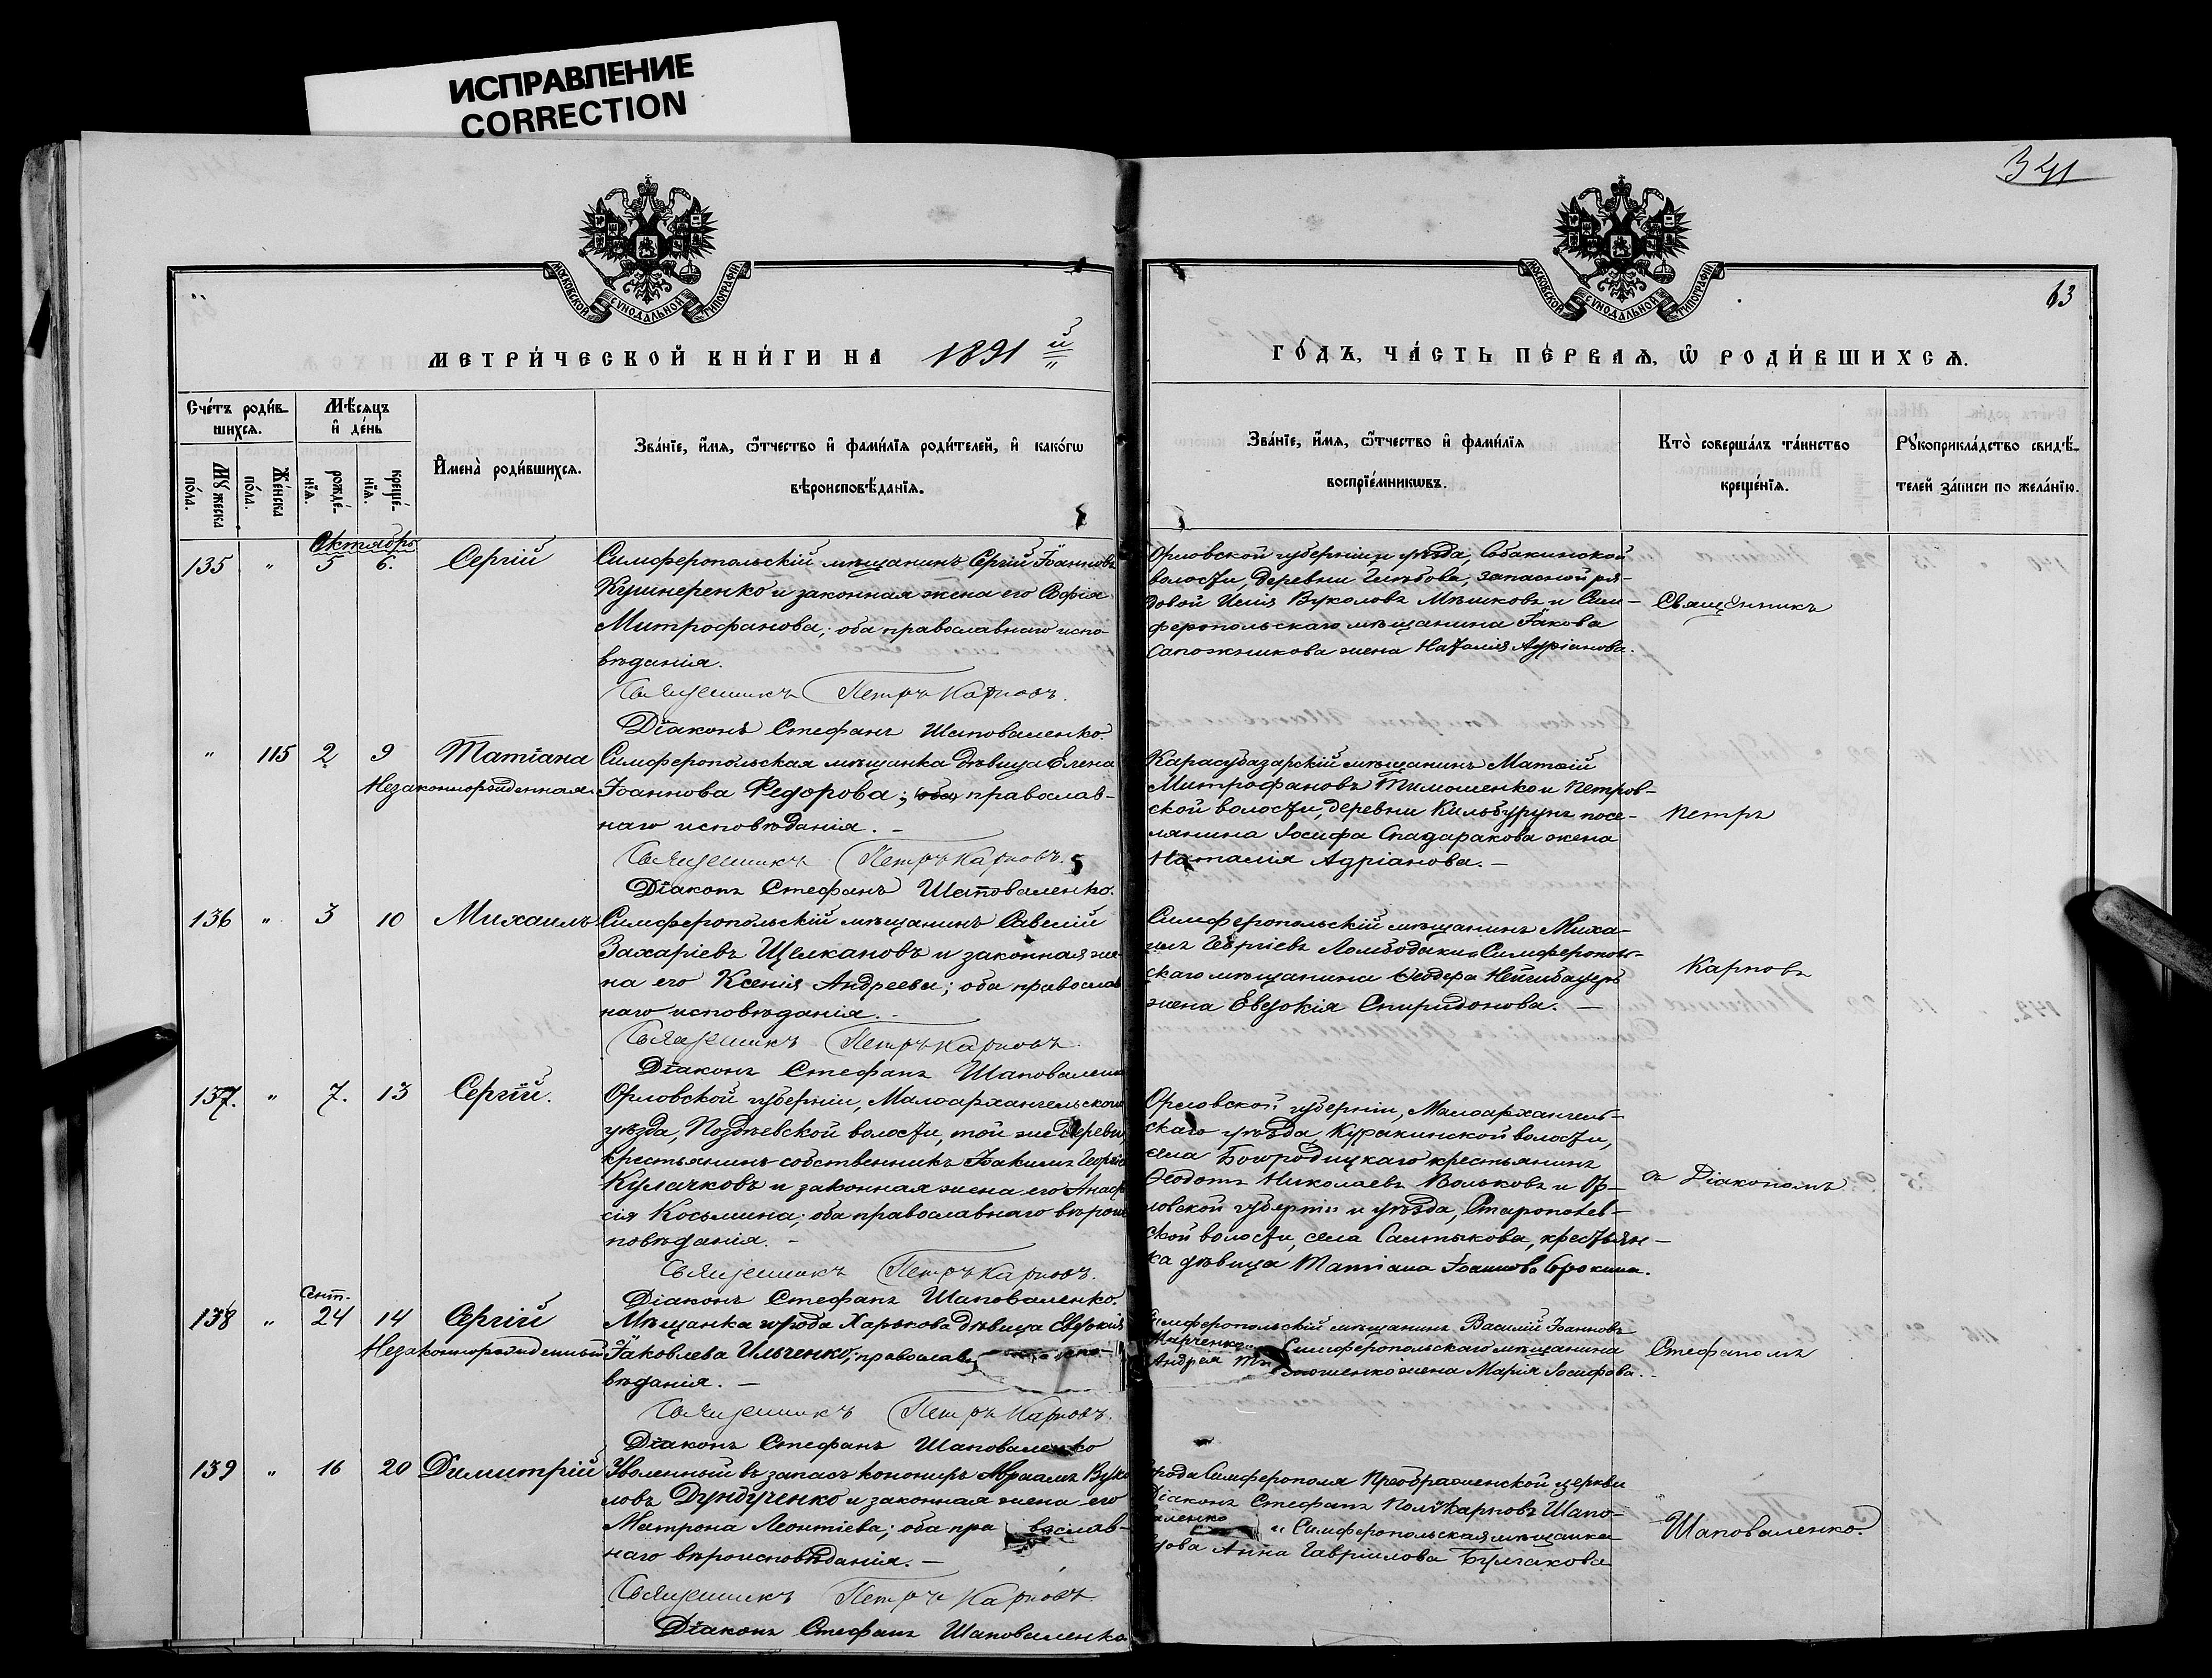 ИСПРАВЛЕНИЕ
CORRECTION
341
МОСКОВСКОЙ СѴНОДАЛЬНОЙ ТИПОГРАФІИ
МОСКОВСКОЙ СѴНОДАЛЬНОЙ ТИПОГРАФІИ
63
МЕТРИ́ЧЕСКОЙ КНИ́ГИ НА 1891й
ГО́ДЪ, ЧА́СТЬ ПЕ́РВАѦ, Ѿ РОДИ́ВШИХСѦ.
Сче́тъ роди́в-
шихсѧ.
Мꙋжеска по́ла.
Же́нска по́ла.
Мѣ́сѧцъ
и҆ де́нь
рожде́-
нїѧ.
креще́-
нїѧ.
И҆мена̀ роди́вшихсѧ.
Зва́нїе, и҆́мѧ, ѻ҆́тчество и҆ фами́лїѧ роди́телей, и҆ како́гѡ
вѣроисповѣ́данїѧ.
Зва́нїе, и҆́мѧ, ѻ҆́тчество и҆ фами́лїѧ
воспрїе́мникѡвъ.
Кто̀ соверша́лъ та́инство
креще́нїѧ.
Рꙋкоприкла́дство свидѣ́-
телей за́писи по жела́нїю.
Октябрь
135 " 5 6. Сергій
Симферопольскій мѣщанинъ Сергій Іоанновъ
Кушнеренко и законная жена его Софія
Митрофанова; оба православнаго испо-
вѣданія.
Священникъ Петръ Карповъ.
Діаконъ Стефанъ Шаповаленко.
Орловской губерніи и уѣзда, Собакинской
волости, деревни Глѣбова, запасной ря-
довой Илія Вуколовъ Мѣшковъ и Сим-
феропольскаго мѣщанина Іакова
Сапожникова жена Наталія Адріанова.
Священникъ
" 115 2 9 Татіана
Незаконнорожденная
Симферопольская мѣщанка дѣвица Елена
Іоаннова Федорова; оба православ-
наго исповѣданія. –
Священникъ Петръ Карповъ.
Діаконъ Стефанъ Шаповаленко.
Карасубазарскій мѣщанинъ Матѳій
Митрофановъ Тимошенко и Петров-
ской волости, деревни Кильбурунъ посе-
лянина Іосифа Спадаракова жена
Наталія Адріанова. –
Петръ
136 " 3 10 Михаилъ
Симферопольскій мѣщанинъ Савелій
Захаріевъ Щелкановъ и законная же-
на его Ксенія Андреева; оба православ
наго исповѣданія. –
Священникъ Петръ Карповъ
Діаконъ Стефанъ Шаповаленк
Симферопольскій мѣщанинъ Миха-
илъ Георгіевъ Ломбодаки и Симферополь-
скаго мѣщанина Ѳеодора
жена Евдокія Спиридонова. –
Карповъ
137. " 7. 13 Сергій.
Орловской губерніи, Малоархангельскаго
уѣзда, Поздѣевской волости, той же деревн
крестьянинъ собственникъ Іоакимъ Георгіе
Кулачковъ и законная жена его Анаста
сія Косьмина; оба православнаго вѣроис
повѣданія. –
Священникъ Петръ Карповъ.
Діаконъ Стефанъ Шаповаленко.
Орловской губерніи, Малоархангель-
скаго уѣзда, Куракинской волости,
села Богородицкаго крестьянинъ
Ѳеодотъ Николаевъ Вольковъ и Ор-
ловской губерніи и уѣзда,
ской волости, села Салтыкова, крестьян-
ка дѣвица Татіана Іоаннова Сорокина.
съ Діакономъ
Сент.
138 " 24 14 Сергій
Незаконнорожденный
Мѣщанка города Харькова дѣвица Евдокія
Іаковлева Ильченко; православ испо-
вѣданія. –
Священникъ Петръ Карповъ.
Діаконъ Стефанъ Шаповаленко
Симферопольскій мѣщанинъ Василій Іоанновъ
Марченко и Симферопольскаго мѣщанина
Андрея Тимошенко жена Марія Іосифова.
Стефаномъ
139 " 16 20 Димитрій
Уволенный въ запасъ конониръ Авраамъ Вуко
ловъ Дундученко и законная жена его
Матрона Леонтіева; оба православ-
наго вѣроисповѣданія. –
Священникъ Петръ Карповъ
Діаконъ Стефанъ Шаповаленко
Города Симферополя Преображенской церкви
Діаконъ Стефанъ Поликарповъ Шапо-
валенко и Симферопольская мѣщанка
вдова Анна Гавриилова Булгакова
Шаповаленко.